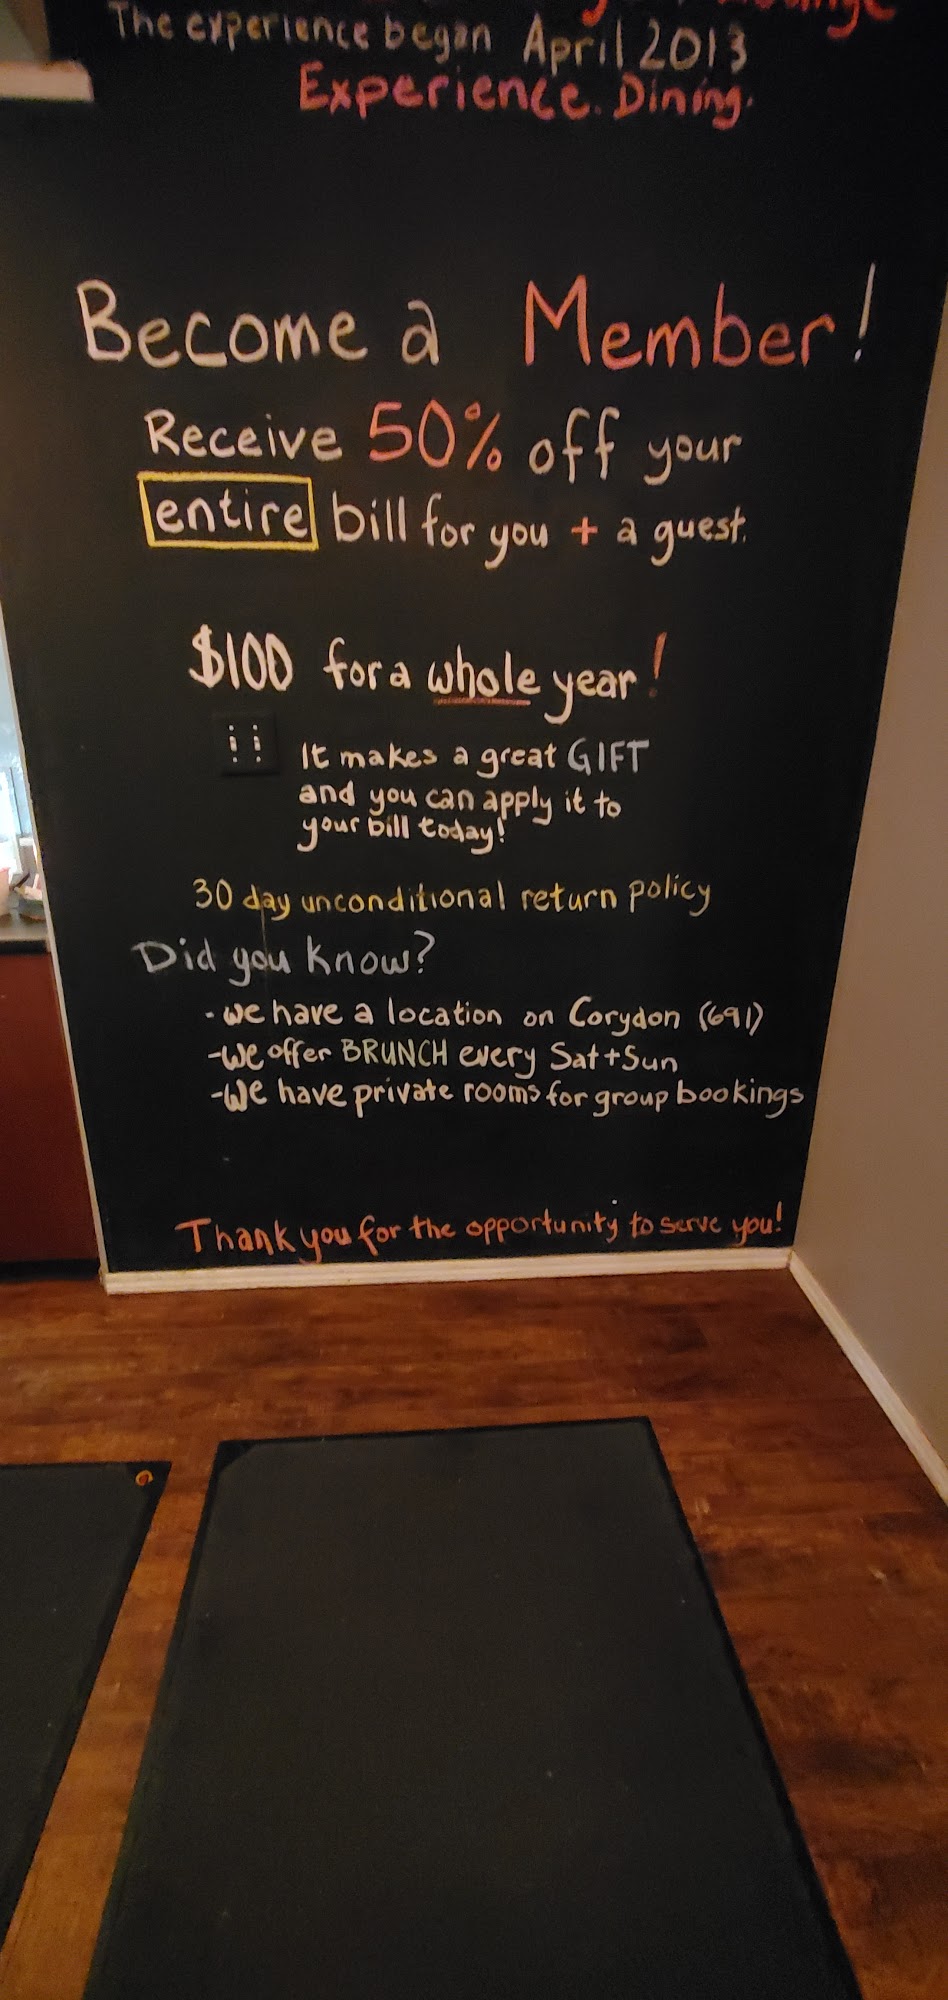 The experience began April 2013
Experience. Dining.
Become a Member!
Receive 50% off your
entire bill for you + a guest.
$100 for a whole year!
It makes a great GIFT
and you can apply it to
your bill today!
30 day unconditional return policy
Did you know?
- we have a location on Corydon (691)
- we offer BRUNCH every Sat + Sun
- We have private rooms for group bookings
Thank you for the opportunity to serve you!